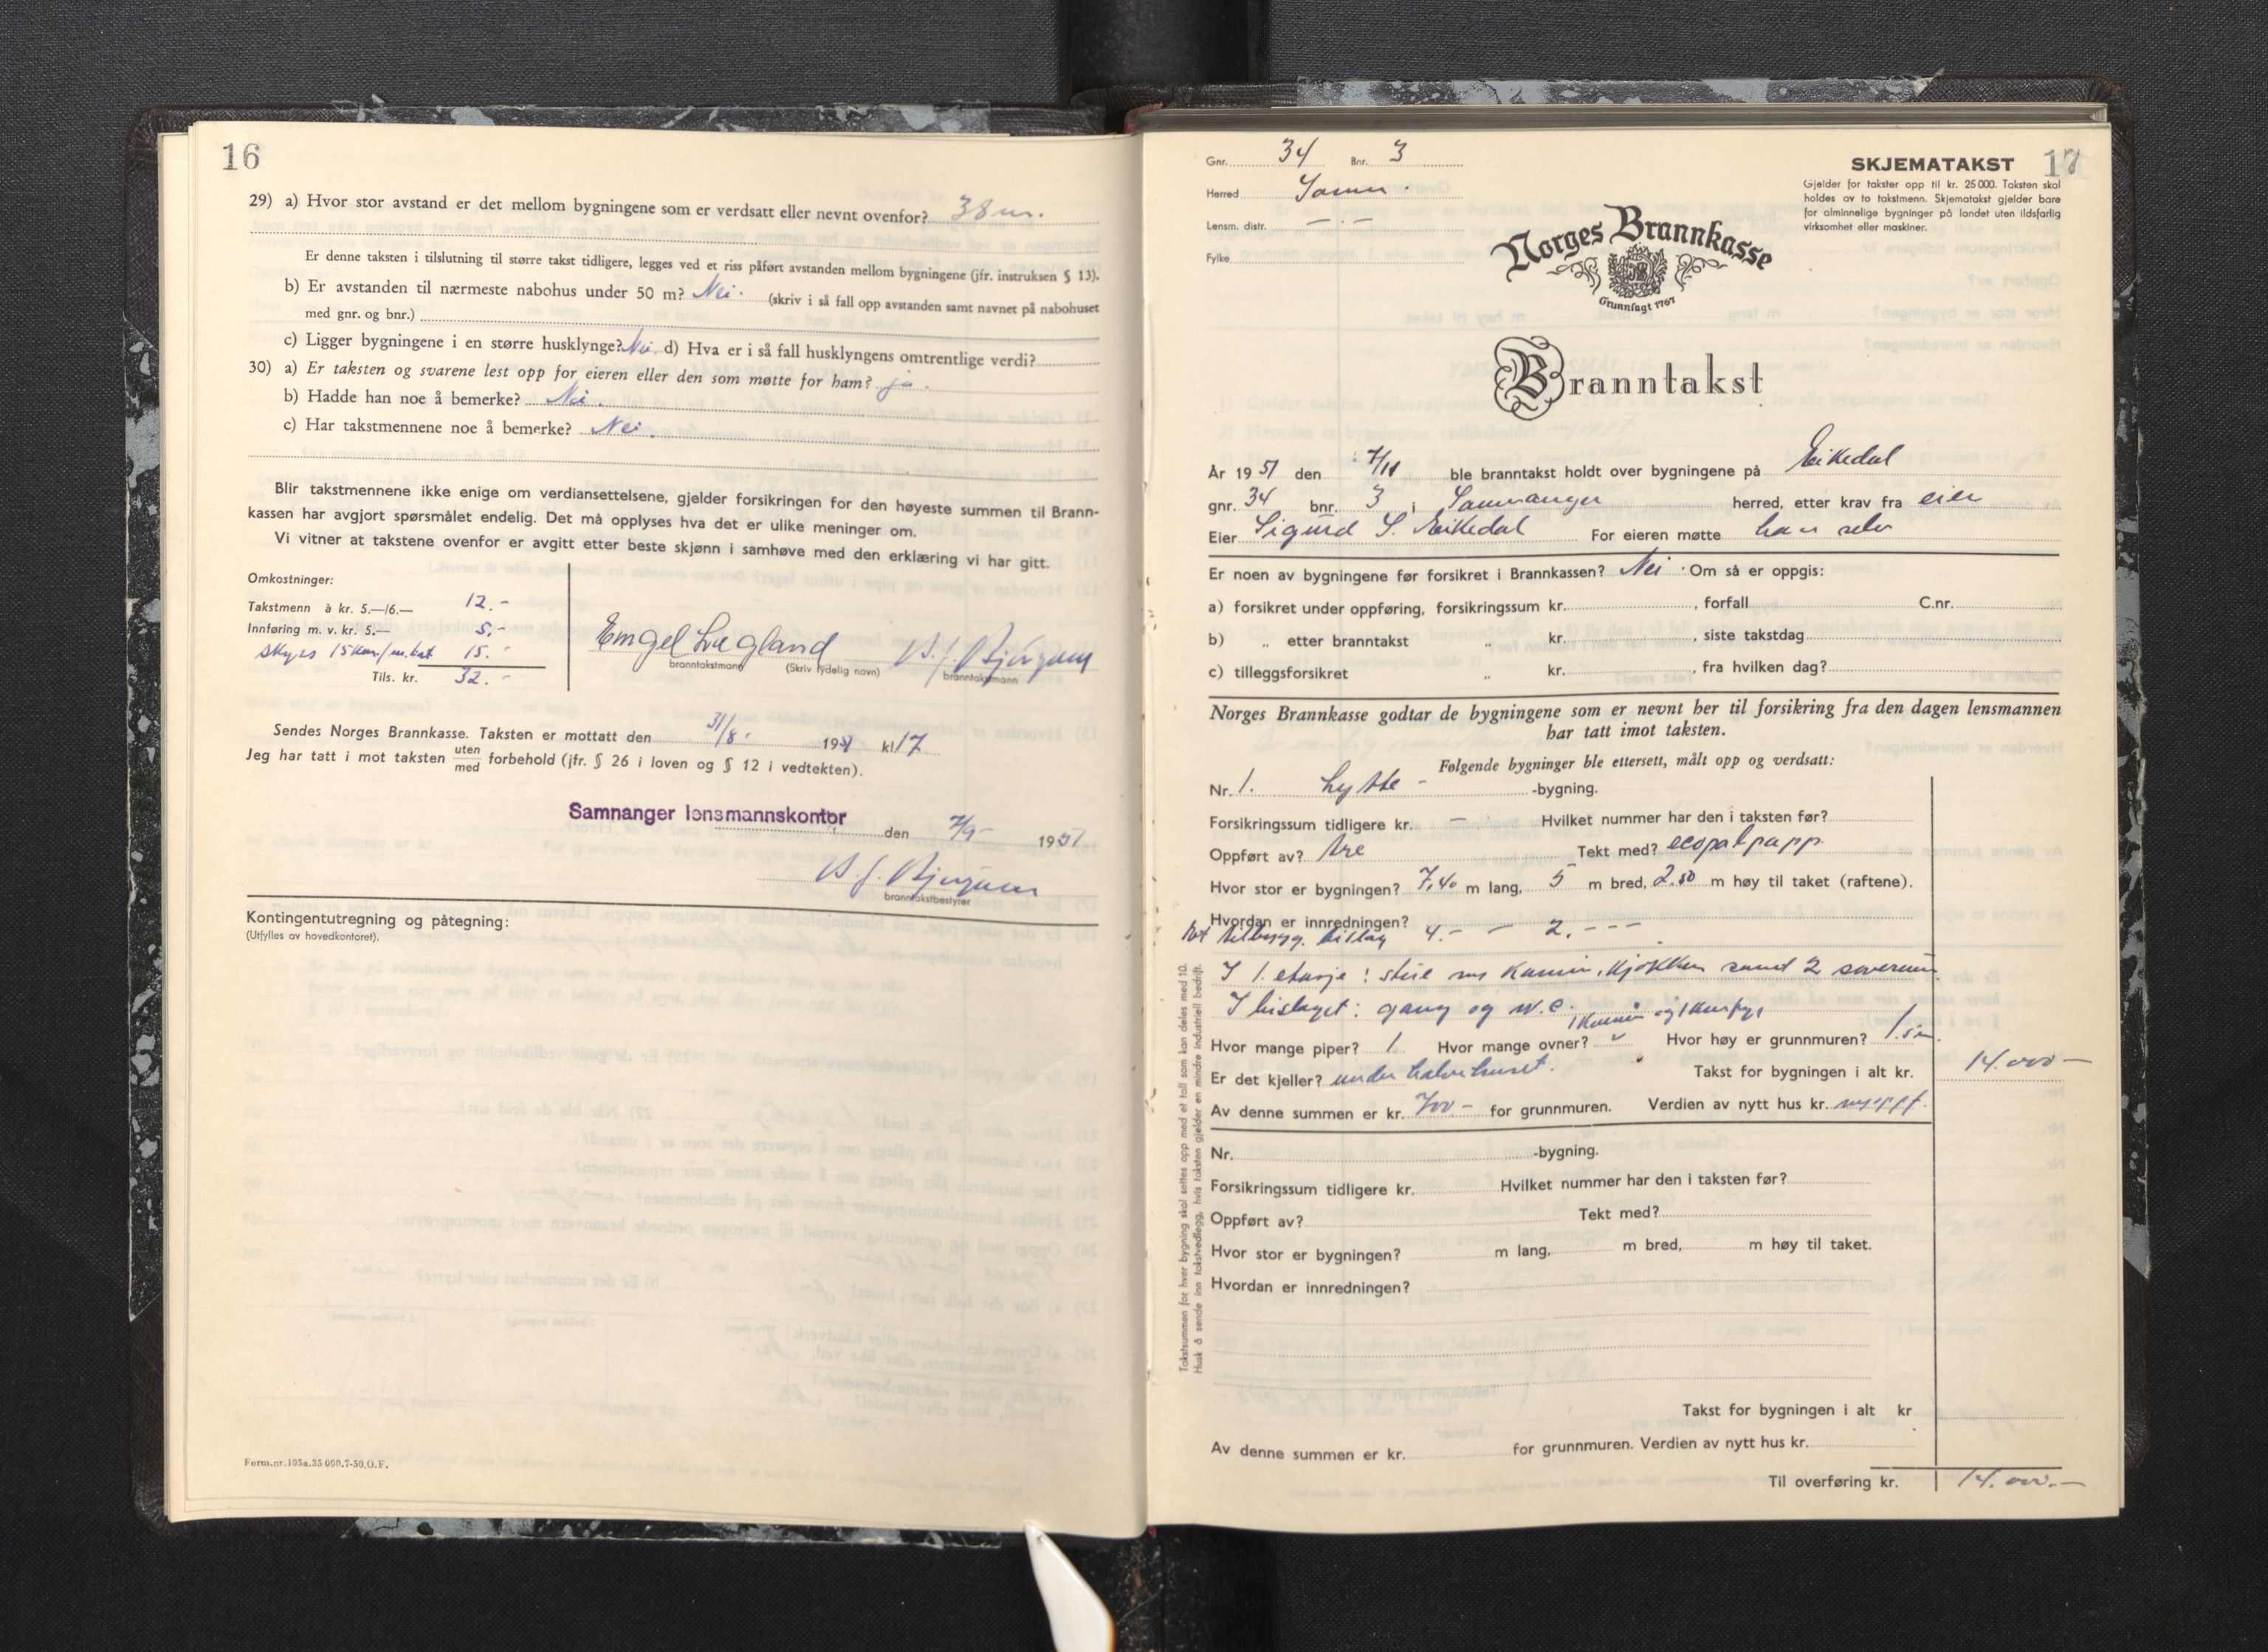 16
29) a) Hvor stor avstand er det mellom bygningene som er verdsatt eller nevnt ovenfor? 38 m.
Er denne taksten i tilslutning til større takst tidligere, legges ved et riss påført avstanden mellom bygningene (jfr. instruksen § 13).
b) Er avstanden til nærmeste nabohus under 50 m? Nei. (skriv i så fall opp avstanden samt navnet på nabohuset
med gnr. og bnr.)
c) Ligger bygningene i en større husklynge? Nei. d) Hva er i så fall husklyngens omtrentlige verdi?
30) a) Er taksten og svarene lest opp for eieren eller den som møtte for ham? ja.
b) Hadde han noe å bemerke? Nei.
c) Har takstmennene noe å bemerke? Nei.
Blir takstmennene ikke enige om verdiansettelsene, gjelder forsikringen for den høyeste summen til Brann-
kassen har avgjort spørsmålet endelig. Det må opplyses hva det er ulike meninger om.
Vi vitner at takstene ovenfor er avgitt etter beste skjønn i samhøve med den erklæring vi har gitt.
Omkostninger:
Takstmenn à kr. 5.—/6.— 12.-
Innføring m. v. kr. 5.— 5.-
Skyss 15 km. 15.-
Tils. kr. 32.-
branntakstmann (Skriv tydelig navn) branntakstmann
Sendes Norges Brannkasse. Taksten er mottatt den 31/8. 1951 kl 17
Jeg har tatt i mot taksten uten/med forbehold (jfr. § 26 i loven og § 12 i vedtekten).
Samnanger lensmannskontor den 7/9- 1951
branntakstbestyrer
Kontingentutregning og påtegning:
(Utfylles av hovedkontoret).
Form.nr.105a.35 000.7-50.O.F.
17
Gnr. 34 Bnr. 3
Herred Samn.
Lensm. distr. — . —
Fylke
SKJEMATAKST
Gjelder for takster opp til kr. 25 000. Taksten skal
holdes av to takstmenn. Skjematakst gjelder bare
for alminnelige bygninger på landet uten ildsfarlig
virksomhet eller maskiner.
Norges Brannkasse
Grunnlagt 1767
Branntakst
År 1951 den 7/11 ble branntakst holdt over bygningene på Eikedal
gnr. 34 bnr. 3 i Samnanger herred, etter krav fra eier
Eier Sigurd S. Eikedal For eieren møtte han selv
Er noen av bygningene før forsikret i Brannkassen? Nei. Om så er oppgis:
a) forsikret under oppføring, forsikringssum kr. , forfall C.nr.
b) „ etter branntakst „ kr. , siste takstdag
c) tilleggsforsikret „ kr. , fra hvilken dag?
Norges Brannkasse godtar de bygningene som er nevnt her til forsikring fra den dagen lensmannen
har tatt imot taksten.
Følgende bygninger ble ettersett, målt opp og verdsatt:
Nr. 1. hytte -bygning.
Forsikringssum tidligere kr. — Hvilket nummer har den i taksten før?
Oppført av? tre Tekt med? ecopalpapp
Hvor stor er bygningen? 7,40 m lang, 5 m bred, 2,50 m høy til taket (raftene).
Hvordan er innredningen?
tilbygg. bislag 4.- - 2.- - -
I 1. etasje: stue m/ kamin, kjøkken samt 2 soverum.
I bislaget: gang og w.c.
Hvor mange piper? 1 Hvor mange ovner? Hvor høy er grunnmuren?
Er det kjeller? under halve huset. Takst for bygningen i alt kr. 14.000 —
Av denne summen er kr. 700 - for grunnmuren. Verdien av nytt hus kr.
Nr. -bygning.
Forsikringssum tidligere kr. Hvilket nummer har den i taksten før?
Oppført av? Tekt med?
Hvor stor er bygningen? m lang, m bred, m høy til taket.
Hvordan er innredningen?
Takst for bygningen i alt kr
Av denne summen er kr. for grunnmuren. Verdien av nytt hus kr.
Til overføring kr. 14.000.—
Takstsummen for hver bygning skal settes opp med et tall som kan deles med 10.
Husk å sende inn takstvedlegg, hvis taksten gjelder en mindre industriell bedrift.